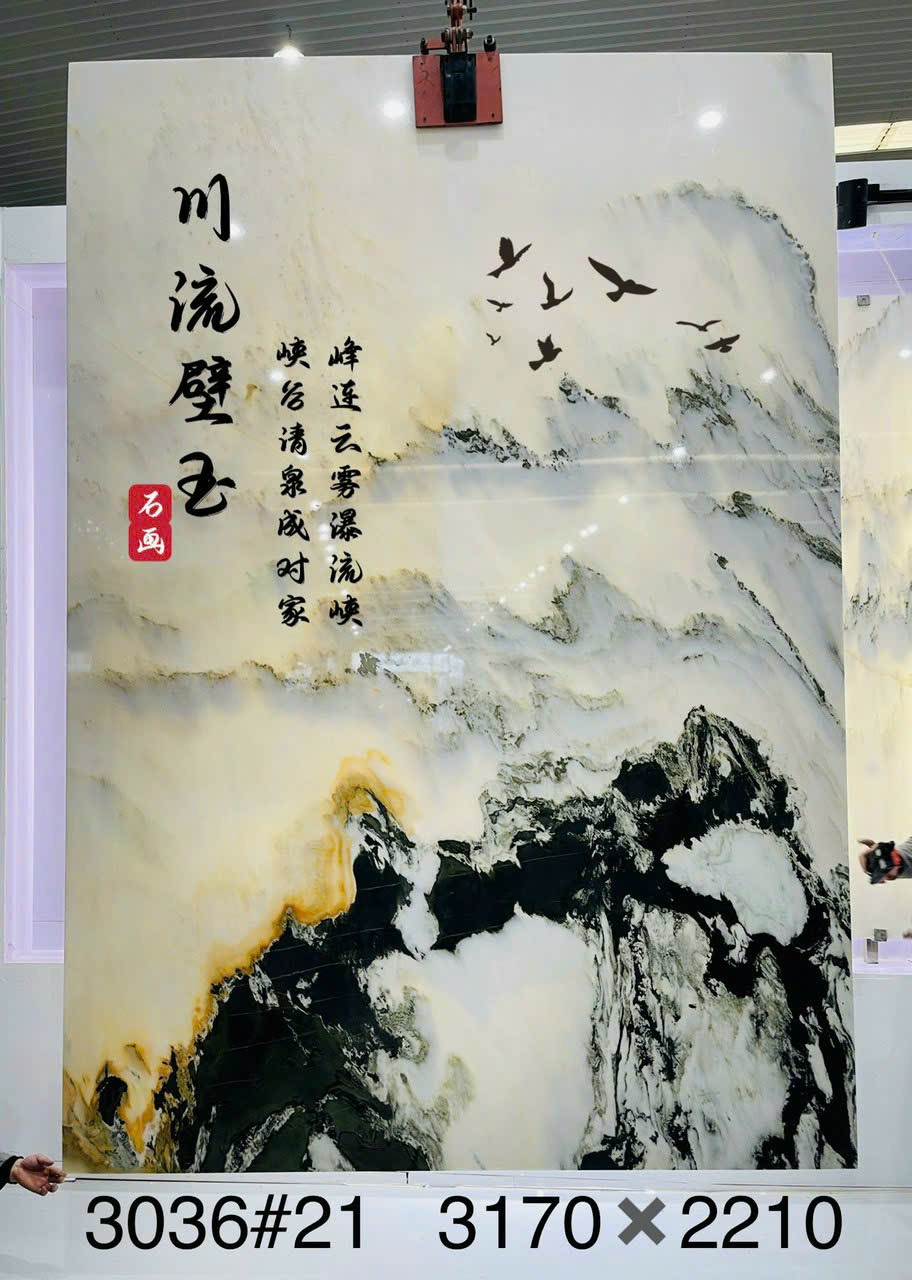 川流壁玉
石画
峰连云雾瀑流峡
峡谷清泉成对家
3036#21 3170✖2210